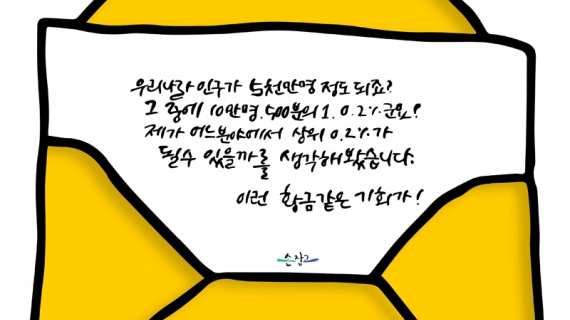 우리나라 인구가 5천만명 정도 되죠?
그 중에 10만명. 500분의 1. 0.2% 군요!
제가 어느분야에서 상위 0.2%가
될수 있을까를 생각해봤습니다.
이런 황금같은 기회가!
손잡고